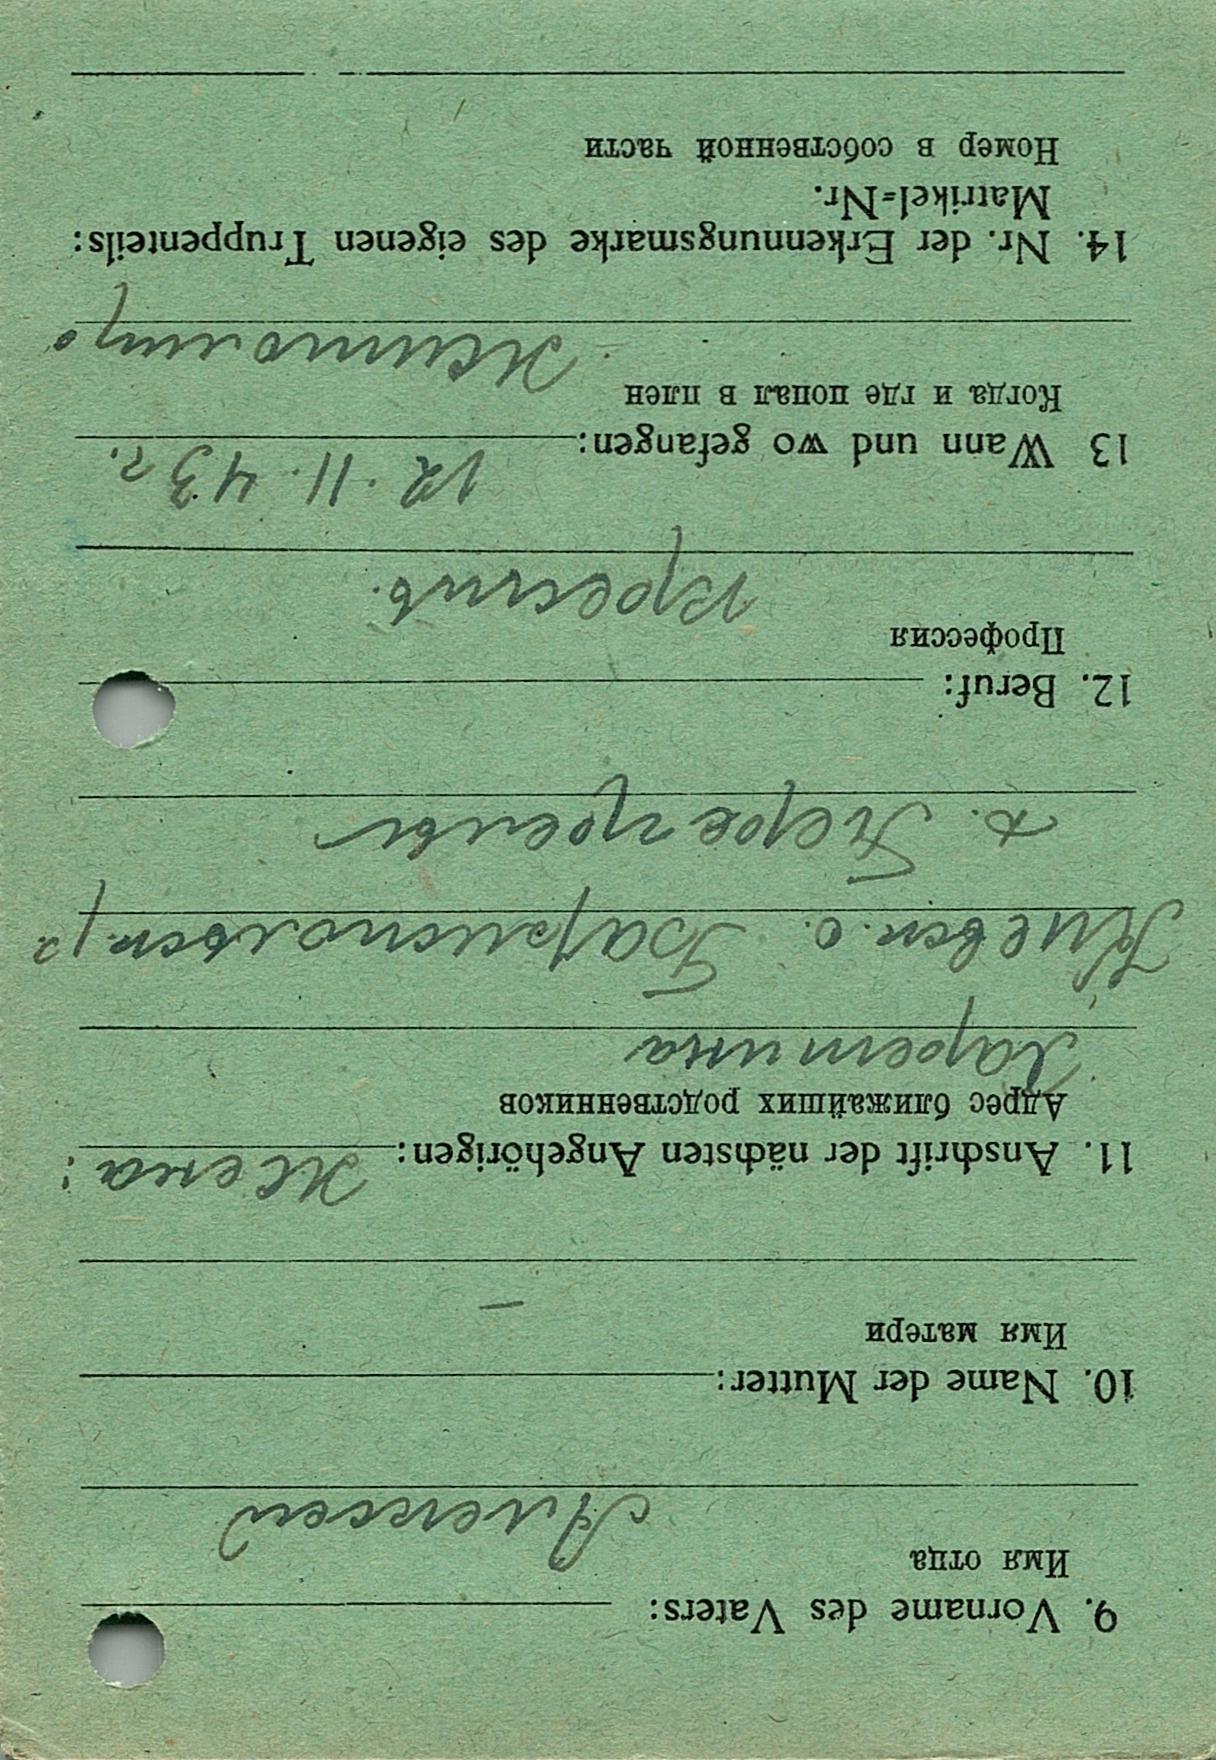 9. Vorname des Vaters:
Имя отца
Алексей
10. Name der Mutter:
Имя матери
–
11. Anschrift der nächsten Angehörigen: Жена:
Адрес ближайших родственников
Киевск. о.
д.
12. Beruf:
Профессия
крестьян.
13 Wann und wo gefangen: 12. 11. 43 г.
Когда и где попал в плен
14. Nr. der Erkennungsmarke des eigenen Truppenteils:
Matrikel=Nr.
Номер в собственной части